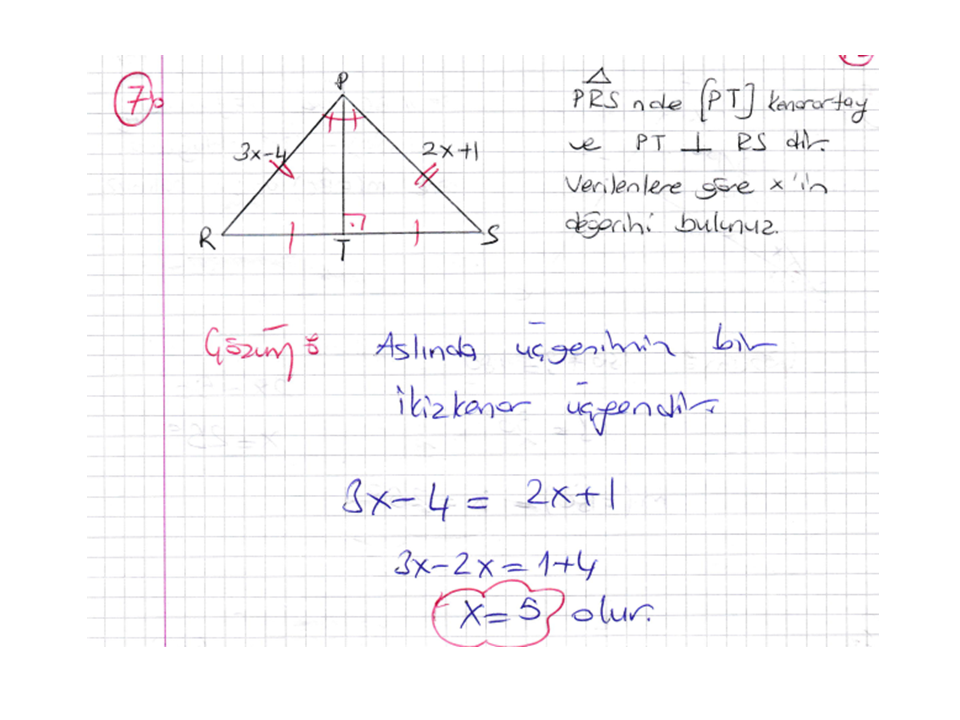 7)
P
3x-4
2x+1
R
T
S
PRS nde [PT] kenarortay
ve PT ⊥ RS dir.
Verilenlere göre x'in
değerini bulunuz.
Çözüm:
Aslında üçgenimin bir
ikizkenar üçgendir.
3x-4 = 2x+1
3x-2x = 1+4
x=5 olur.